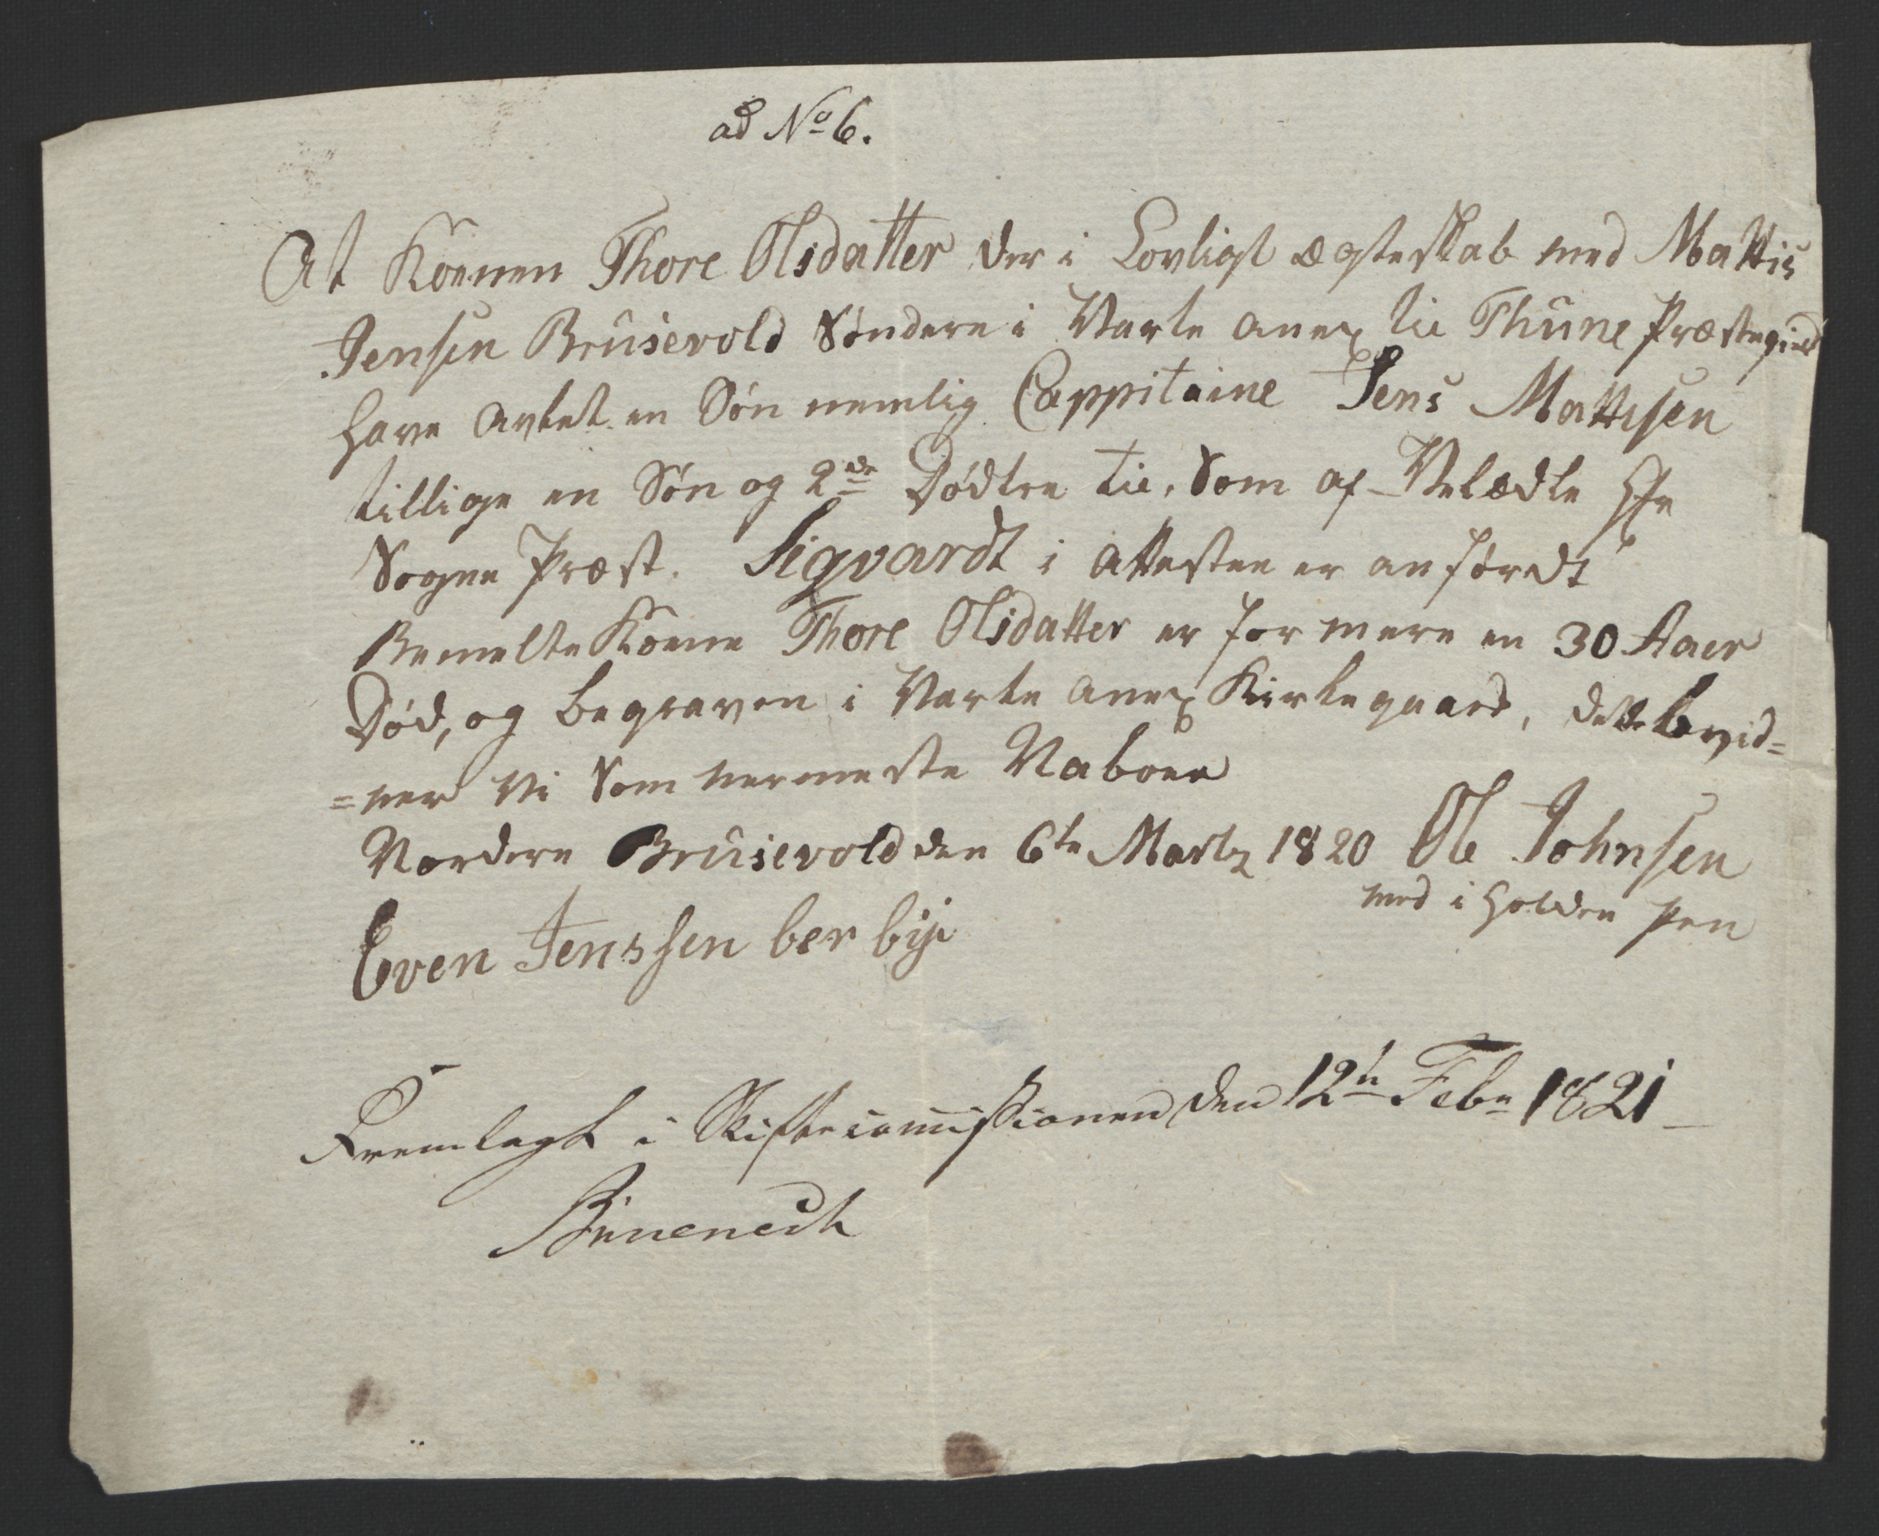 ad No 6.
At Konnen Thore Olsdatter der i Lovligt ægteskab med Mattis
Jensen Brusevold Søndere i Warte anex til Thune Præstegield
have avlet en Søn nemlig Cappitaine Jens Mattisen
tillige en Søn og 2de Dødtre til, Som af Velædle Hr
Sogne Præst. Sigvardt i Attesten er anfördt
Bemelte Kone Thore Olsdatter er for mere en 30 Aaer
Død, og begraven i Warte anex Kirkegaard, dette bevid=
=ner Vi Som nermeste Naboer
Nordere Brusevold den 6te Martz 1820 Ole Johnsen
med i Holden Pen
Even Jenssen ber bye
Fremlagt i Skiftecommissionen den 12te Febr 1821